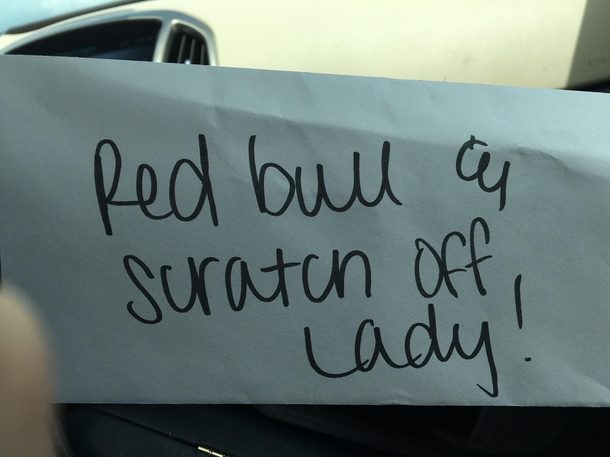 Red bull &
scratch off
Lady!